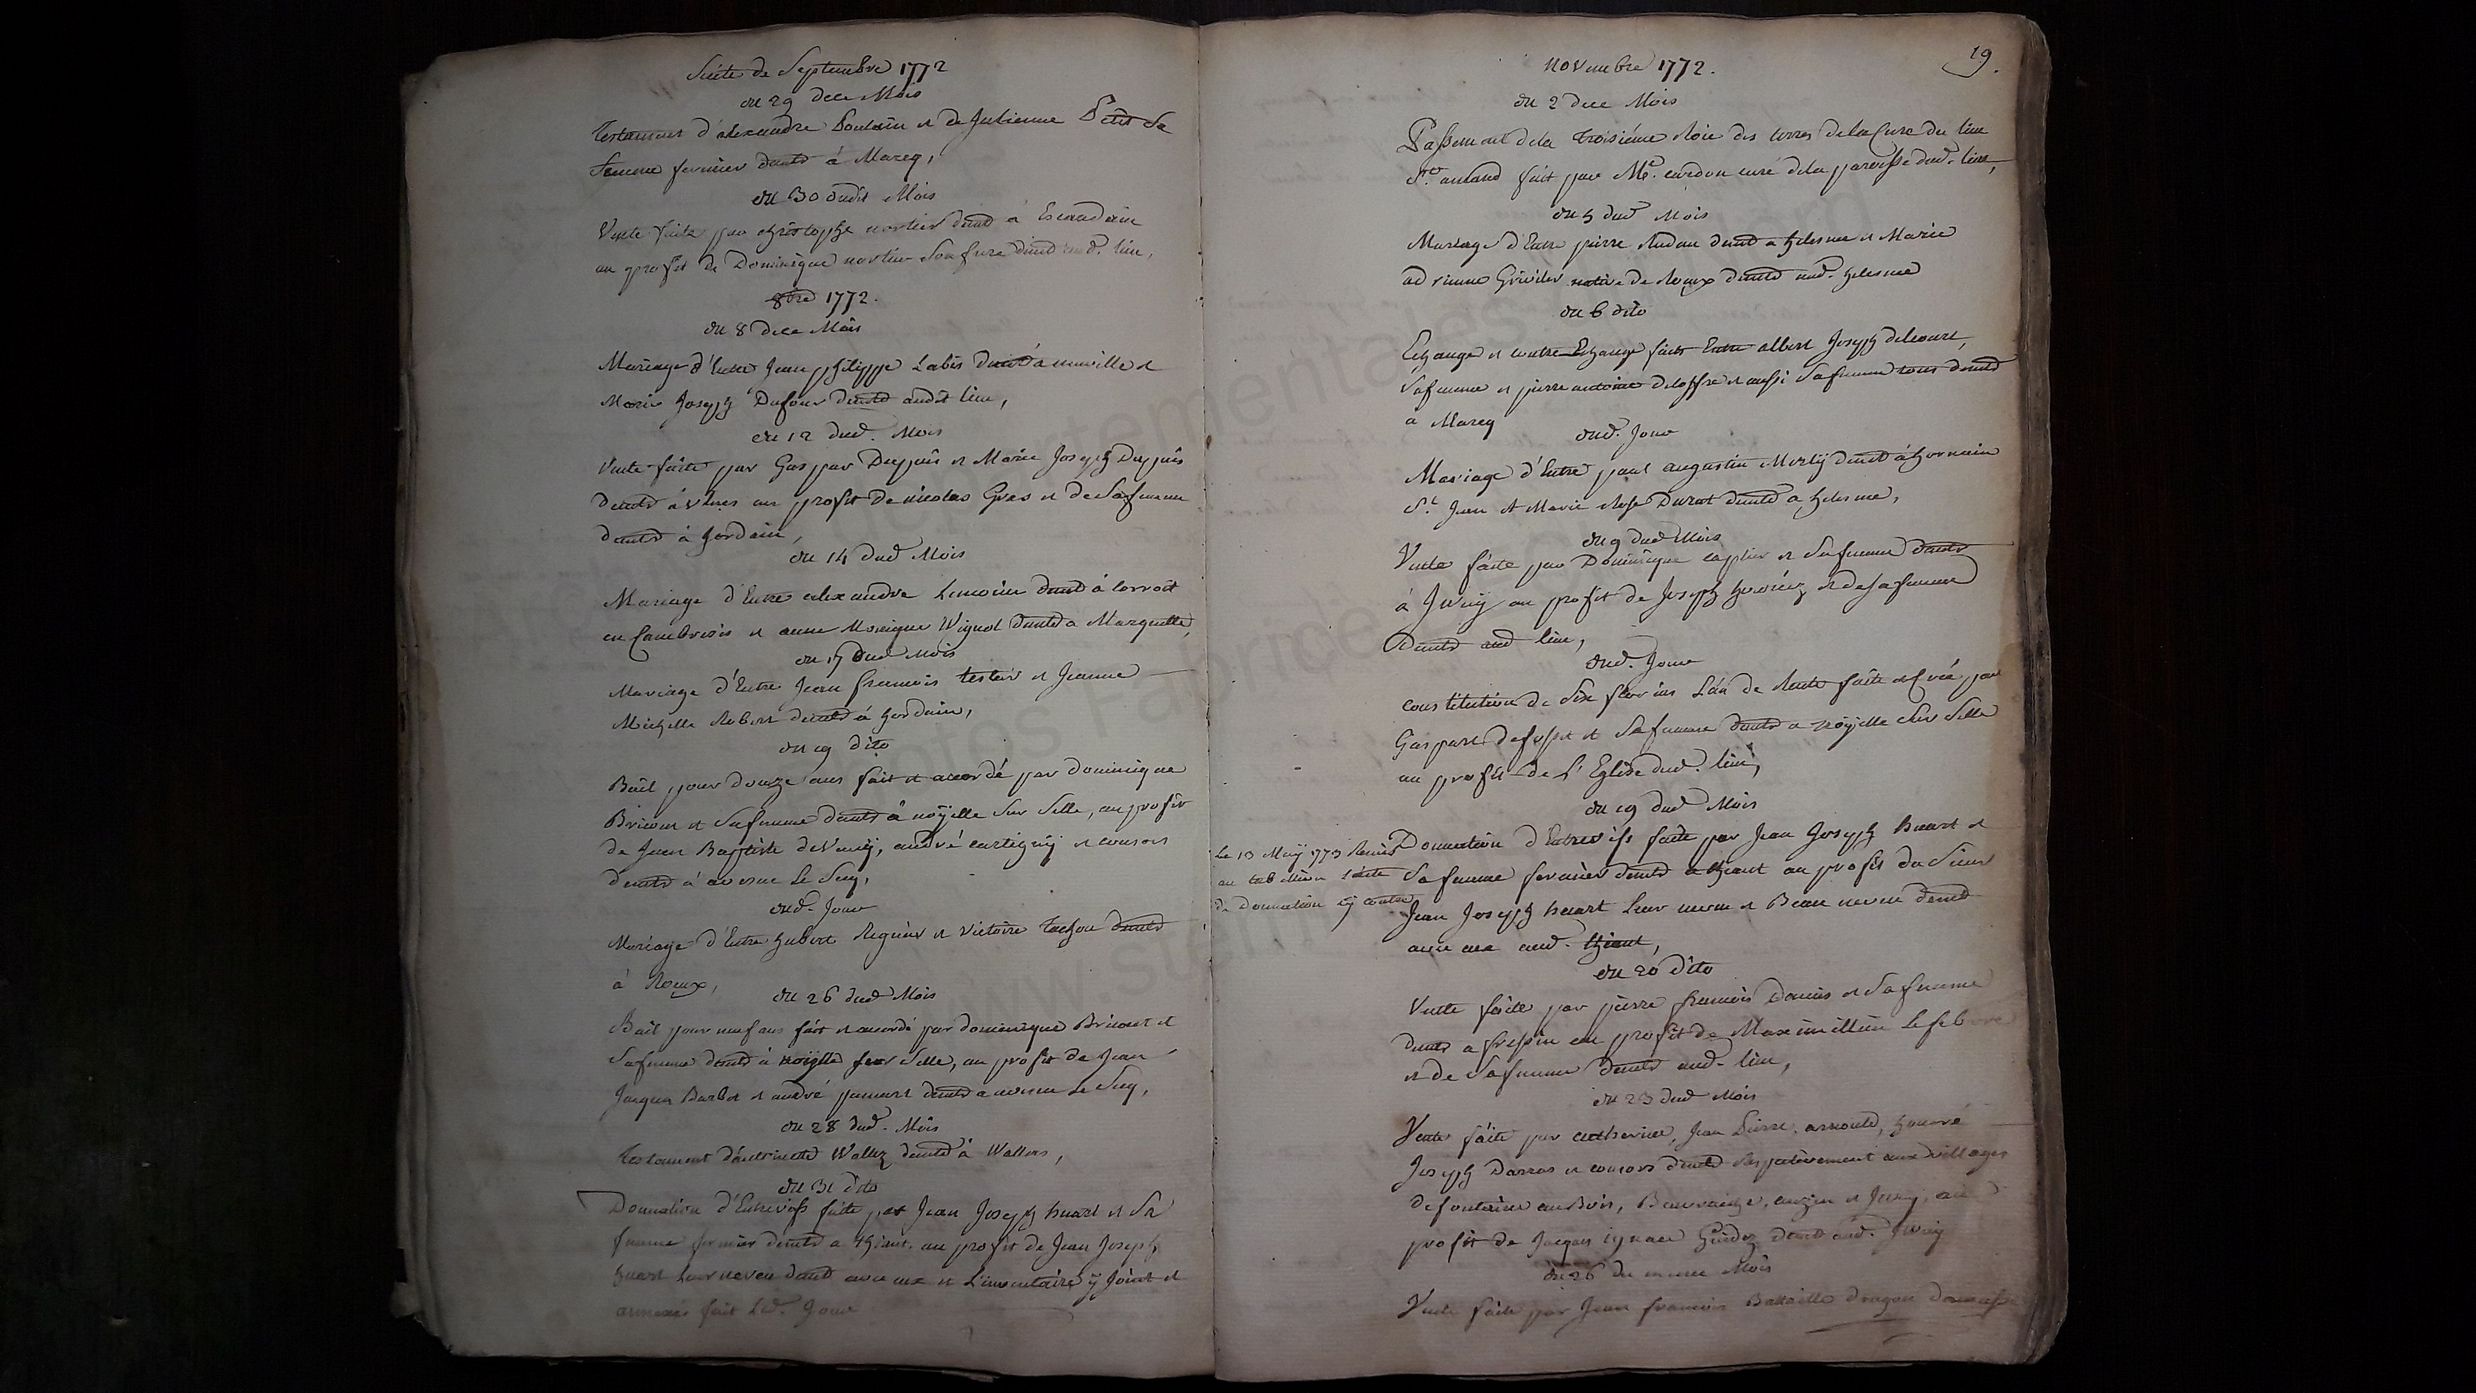 Suite de Septembre 1772
du 29 dece Mois
Testament d'alexandre Poulain et de Julienne Petit Sa
femme fermier dmts à Marcq,
du 30 dudit Mois
Vente faite par christophe mortier dmt à Escaudain
au profit de Dominique mortier Son frere dmt aud. lieu,
8bre 1772.
du 8 dece Mois
Mariage d'Entre Jean philippe Labis dmt à neuville et
Marie Joseph Dufour dmte audit lieu,
du 12 dud. Mois
Vente faite par Gaspar Dupuis et Marie Joseph Dupuis
dmts à au profit de nicolas Gras et de Safemme
dmts à hordain,
du 14 dud Mois
Mariage d'Entre alexandre Lemoine dmt à
en Cambresis et anne Monique Wignol dmte a Marquette,
du 17 dud Mois
Mariage d'Entre Jean francois testar et Jeanne
Michelle Robert dmts à hordain,
du 19 dito
Bail pour douze ans fait et accordé par dominique
Bricout et Safemme dmts à noÿelle Sur Selle, au profit
de Jean Baptiste andré cartigny et consors
dmts à avesne Le Secq,
dud. Jour
Mariage d'Entre hubert Regnier et Victoire dmts
à Roeux,
du 26 dud Mois
Bail pour neuf ans fait et accordé par dominique Bricout et
Safemme dmts à noÿelle sur Selle, au profit de Jean
Jacques Barbet et andré dmts a avesne Le Secq,
du 28 dud. Mois
Testament d'antoinette Wallez dmte à Wallers,
du 31 dito
Donnation d'Entrevifs faite par Jean Joseph huart et Sa
femme fermier dmts a thiant, au profit de Jean Joseph
huart Leur neveu dmt avec eux et L'inventaire ÿ Joint et
annexé fait Led. Jour
19.
Novembre 1772.
du 2 dece Mois
Passement dela troisiéme Roie des terres dela Cure du lieu
St. amand fait par Me. cardon curé dela paroisse dud. lieu,
du 5 dud Mois
Mariage d'Entre pierre dmt a helesme et Marie
adrienne native de Roeux dmte aud. helesme
du 6 dito
Echange et contre Echange faits Entre albert Joseph delcourt,
Safemme et pierre antoine deloffre et aussi Safemme tous dmts
à Marcq
dud. Jour
Mariage d'Entre paul augustin dmt à hornain
St. Jean et Marie Rose Durat dmte a helesme,
du 9 dud Mois
Vente faite par Dominique caplier et Safemme dmts
à Jwuy au profit de Joseph et deSafemme
dmts aud lieu,
dud. Jour
constitution de Six florins L'an de Rente faite et Créé par
Gaspart defosset et Safemme dmts a noÿelle Sur Selle
au profit de L'Eglise dud. lieu,
du 19 dud Mois
Le 13 Maÿ 1773 Remis
au tabellion Lacte
de Donnation cÿ contre
Donnation d'Entrevifs faite par Jean Joseph huart et
Safemme fermier dmts a thiant au profit du Sieur
Jean Joseph huart Leur neveu et Beau neveu dmt
avec eux aud. thiant,
du 20 dito
Vente faite par pierre francois Danis et Safemme
dmts a fressin au profit de Maximillien Lefebvre
et de Safemme dmts aud. lieu,
du 23 dud Mois
Vente faite par catherine, Jean Pierre, arnould, honoré
Joseph Darras et consors dmts respectivement aux villages
defontaine auBois, anzin et Jwuy, au
profit de Jacques ignace Guidez dmt aud. Jwuy
du 26 du meme Mois
Vente faite par Jean francois Bataille dragon